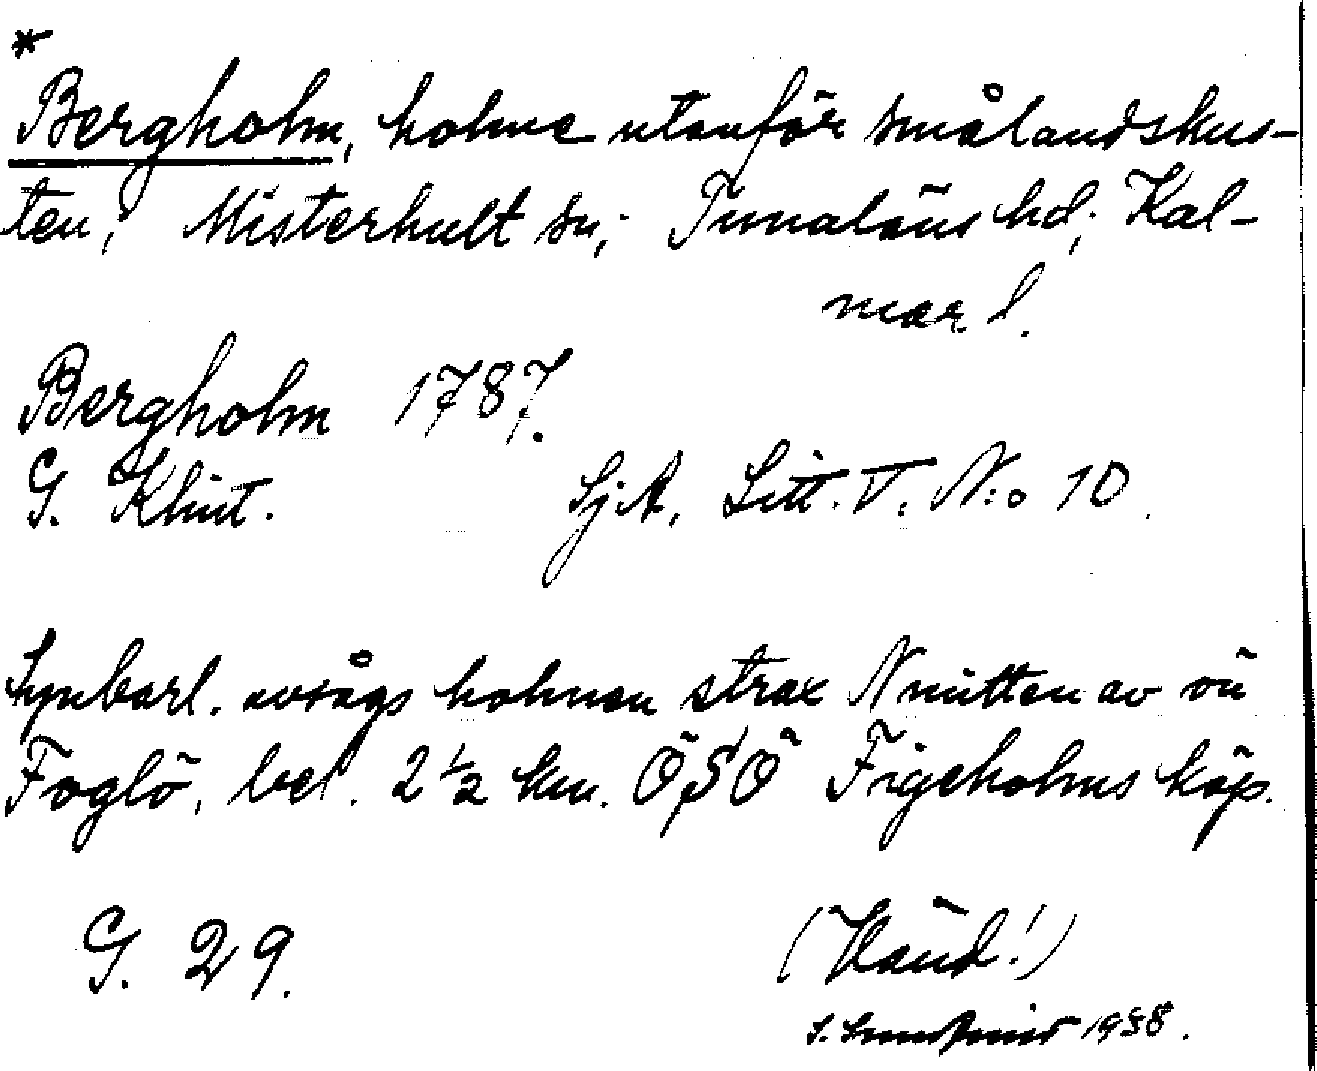 *
Bergholm, holme utanför smålandskus-
ten; Misterhult sn; Tunaläns hd; Kal-
mar l.
Bergholm 1787.
G. Klint. SjA, Litt. V. N:o 10.
Synbarl. avsågs holmen strax N mitten av ön
Foglö, bel. 2 1/2 km. ÖSÖ Figeholms köp.
G. 29. (Vänd!)
S. 1938.